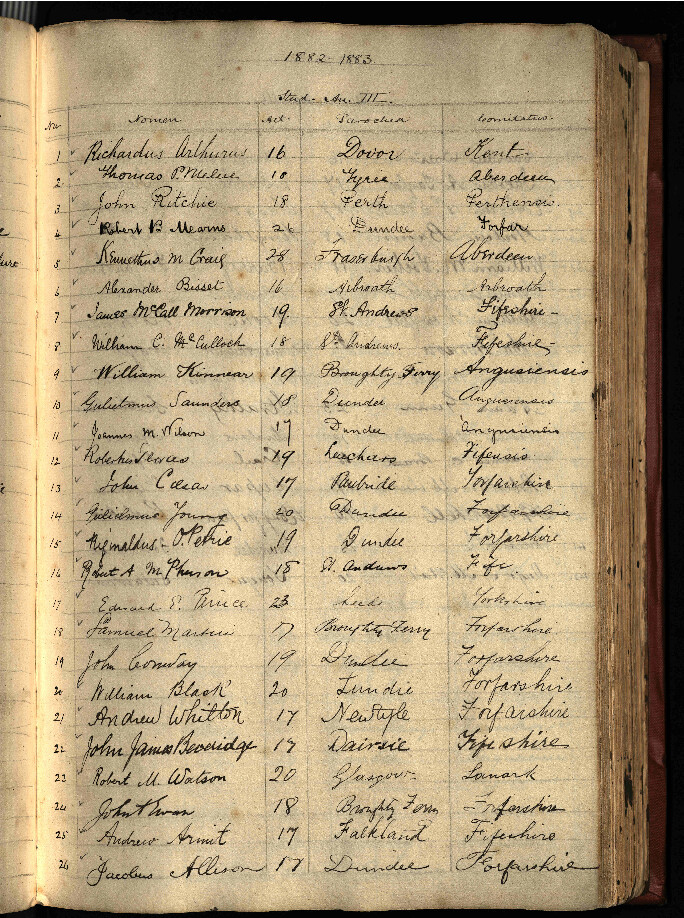 1882-1883
Stud. An. III.
No Nomen Aet. Parochia Comitatus
1 Richardus Arthurus 16 Dovor Kent
2 Thomas P. 18 Fyvie Aberdeen
3 John Ritchie 18 Perth Perthensis
4 Robert B. Mearns 26 Dundee Forfar
5 Kennethus M Craig 28 Fraserburgh Aberdeen
6 Alexander Bisset 16 Arbroath Arbroath
7 James McCall Morrison 19. St. Andrews Fifeshire-
8 William C. McCulloch 18 St. Andrews. Fifeshire-
9 William Kinnear 19 Broughty Ferry Angusiensis
10 Gulielmus Saunders 18 Dundee Angusiensis
11 Joannes M. Wilson 17 Dundee Angusiensis
12 Robertus 19 Leuchars Fifensis
13 John Caesar 17 Panbride Forfarshire
14 Gulielmus Young 20 Dundee Forfarshire
15 Reginaldus O. Petrie 19 Dundee Forfarshire
16 Robert A McPherson 18 St. Andrews Fife
17 Edward E. Prince 23 Leeds Yorkshire
18 Samuel Martin 17 Broughty Ferry Forfarshire
19 John Conway 19 Dundee Forfarshire
20 William Black 20 Lundie Forfarshire
21 Andrew Whitton 17 Newtyle Forfarshire
22 John James Beveridge 17 Dairsie Fifeshire
23 Robert M. Watson 20 Glasgow Lanark
24 John Ewan 18 Broughty Ferry Forfarshire
25 Andrew Armit 17 Falkland Fifeshire
26 Jacobus Allison 17 Dundee Forfarshire